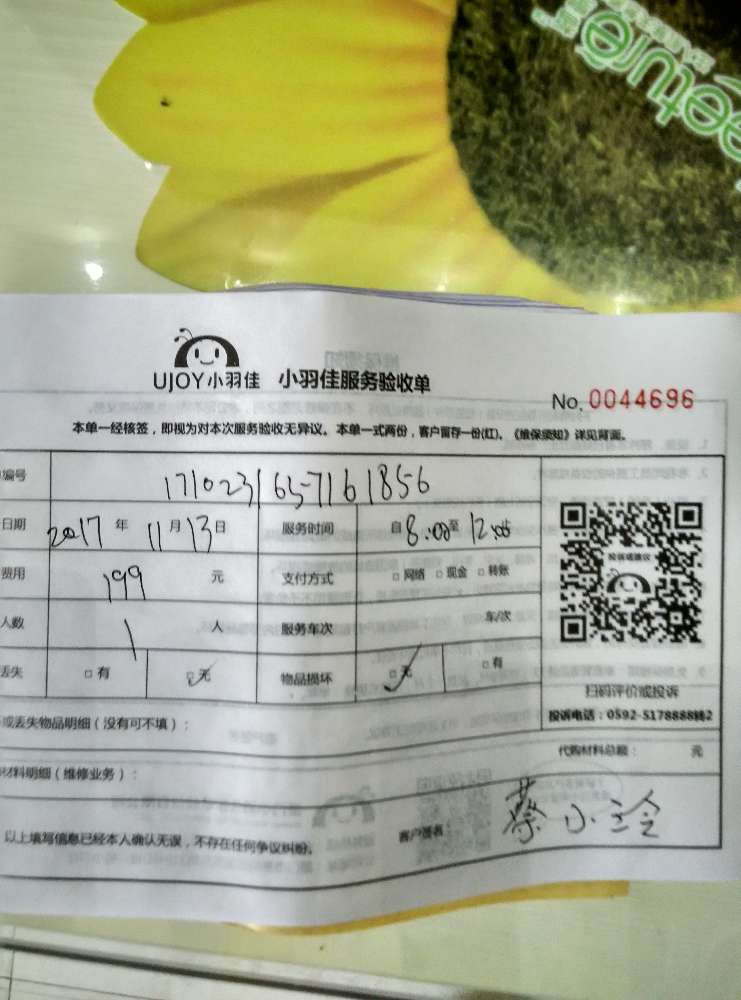 UJOY小羽佳 小羽佳服务验收单
No. 0044696
本单一经核签，即视为对本次服务验收无异议。本单一式两份，客户留存一份(红)。《维保须知》详见背面。
编号 1710231657161856
日期 2017 年 11 月 13 日 服务时间 自 8:00 至 12:00
费用 199 元 支付方式 □ 网络 □ 现金 □ 转账
人数 1 人 服务车次 车/次
丢失 □ 有 □ 无 物品损坏 □ 无 □ 有
投诉或建议
扫码评价或投诉
投诉电话：0592-5178888转2
或丢失物品明细（没有可不填）：
代购材料总额： 元
材料明细（维修业务）：
以上填写信息已经本人确认无误，不存在任何争议纠纷。
客户签名：
蔡小